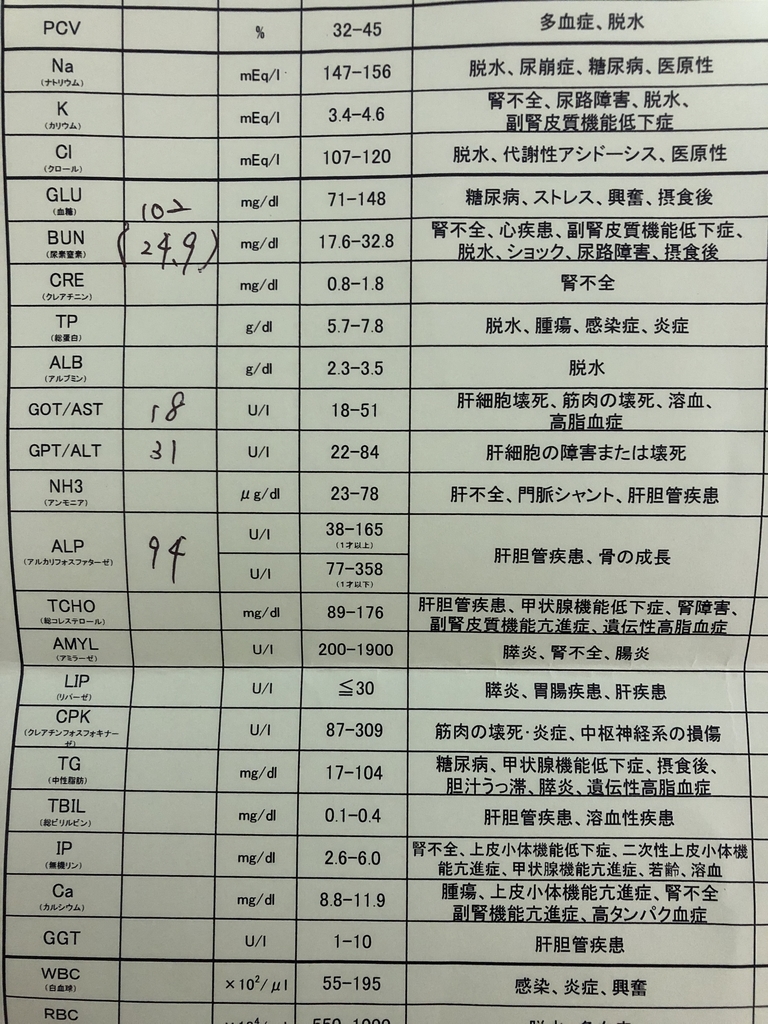 PCV % 32-45 多血症、脱水
Na mEq/l 147-156 脱水、尿崩症、糖尿病、医原性
(ナトリウム)
K mEq/l 3.4-4.6 腎不全、尿路障害、脱水、
(カリウム) 副腎皮質機能低下症
Cl mEq/l 107-120 脱水、代謝性アシドーシス、医原性
(クロール)
GLU 102 mg/dl 71-148 糖尿病、ストレス、興奮、摂食後
(血糖)
BUN (24.9) mg/dl 17.6-32.8 腎不全、心疾患、副腎皮質機能低下症、
(尿素窒素) 脱水、ショック、尿路障害、摂食後
CRE mg/dl 0.8-1.8 腎不全
(クレアチニン)
TP g/dl 5.7-7.8 脱水、腫瘍、感染症、炎症
(総蛋白)
ALB g/dl 2.3-3.5 脱水
(アルブミン)
GOT/AST 18 U/l 18-51 肝細胞壊死、筋肉の壊死、溶血、
高脂血症
GPT/ALT 31 U/l 22-84 肝細胞の障害または壊死
NH3 μg/dl 23-78 肝不全、門脈シャント、肝胆管疾患
(アンモニア)
ALP 94 U/l 38-165 肝胆管疾患、骨の成長
(アルカリフォスファターゼ) (1才以上)
U/l 77-358
(1才以下)
TCHO mg/dl 89-176 肝胆管疾患、甲状腺機能低下症、腎障害、
(総コレステロール) 副腎皮質機能亢進症、遺伝性高脂血症
AMYL U/l 200-1900 膵炎、腎不全、腸炎
(アミラーゼ)
LIP U/l ≦30 膵炎、胃腸疾患、肝疾患
(リパーゼ)
CPK U/l 87-309 筋肉の壊死・炎症、中枢神経系の損傷
(クレアチンフォスフォキナーゼ)
TG mg/dl 17-104 糖尿病、甲状腺機能低下症、摂食後、
(中性脂肪) 胆汁うっ滞、膵炎、遺伝性高脂血症
TBIL mg/dl 0.1-0.4 肝胆管疾患、溶血性疾患
(総ビリルビン)
IP mg/dl 2.6-6.0 腎不全、上皮小体機能低下症、二次性上皮小体機
(無機リン) 能亢進症、甲状腺機能亢進症、若齢、溶血
Ca mg/dl 8.8-11.9 腫瘍、上皮小体機能亢進症、腎不全
(カルシウム) 副腎機能亢進症、高タンパク血症
GGT U/l 1-10 肝胆管疾患
WBC ×10²/μl 55-195 感染、炎症、興奮
(白血球)
RBC